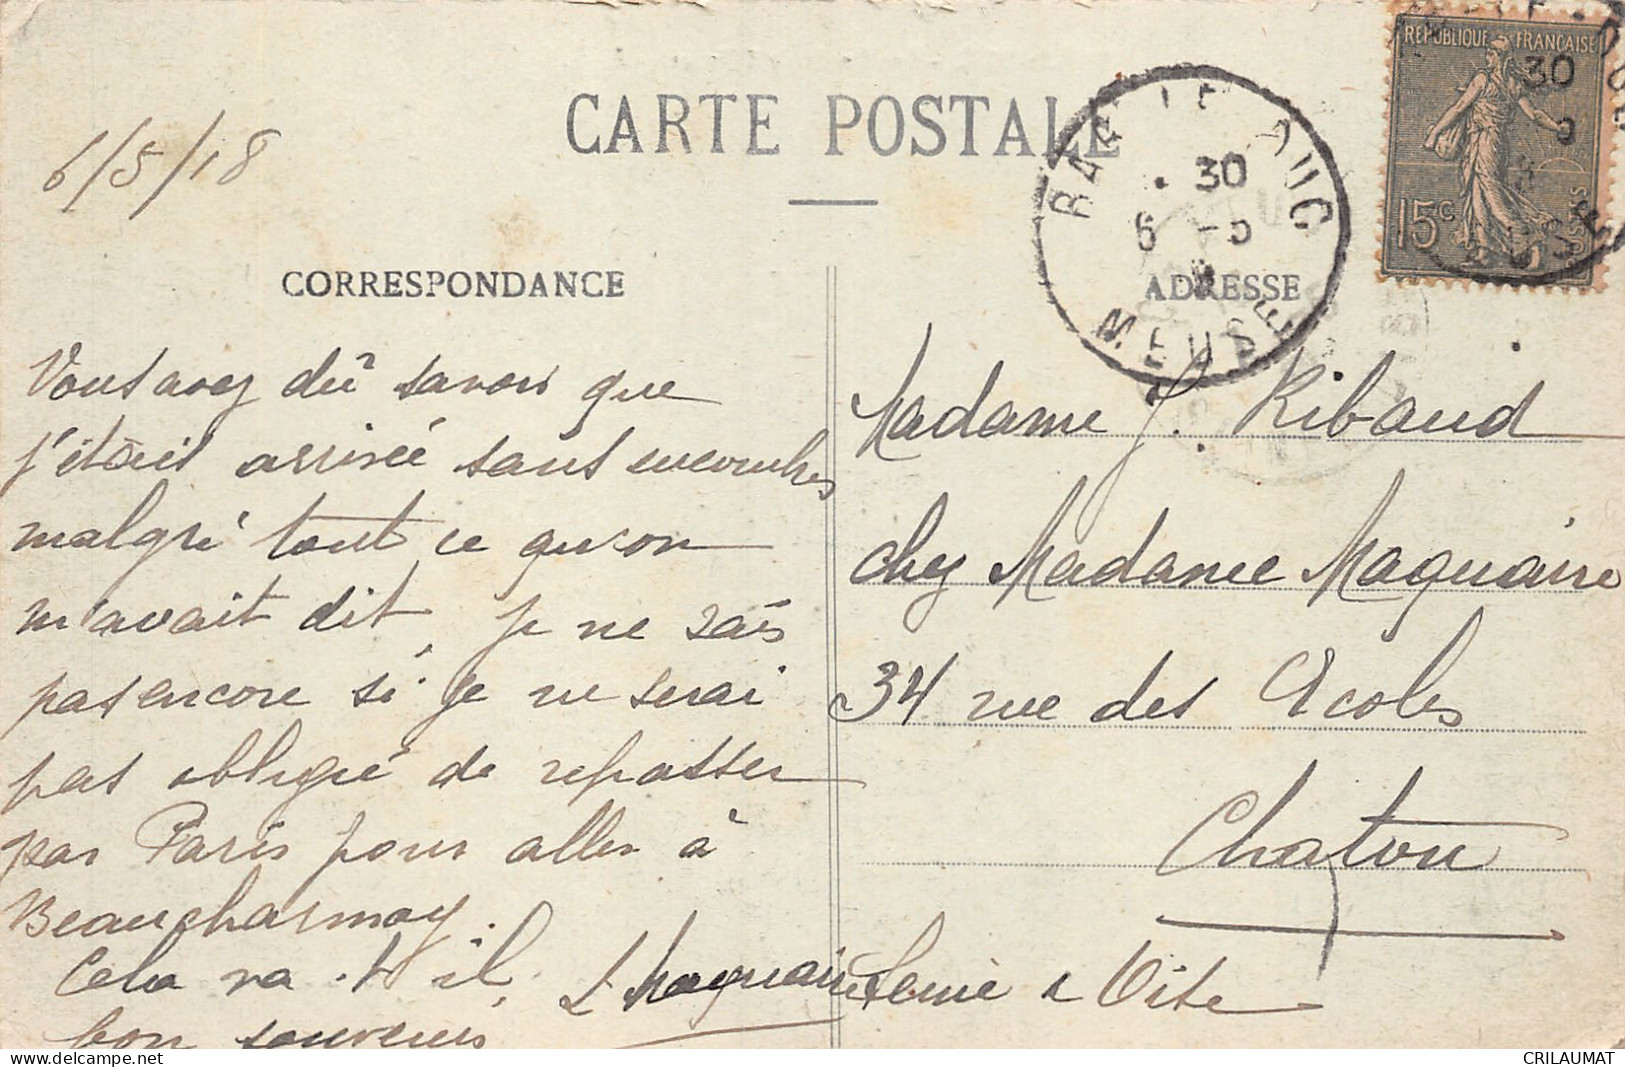 CARTE POSTALE
6/5/18
BAR LE DUC
30
6 -5
MEUSE
REPUBLIQUE FRANCAISE
30
15c
CORRESPONDANCE
ADRESSE
Vous avez dû savoir que
j'étais arrivée sans encombres
malgré tout ce qu'on
m'avait dit, je ne sais
pas encore si je ne serai
pas obligé de repasser
par Paris pour aller à
Beaucharmoy.
Cela va-t-il,
bon souvenir
L Maquaire
Madame J. Ribaud
chez Madame Maquaire
34 rue des Ecoles
Chatou
Seine & Oise
CRILAUMAT